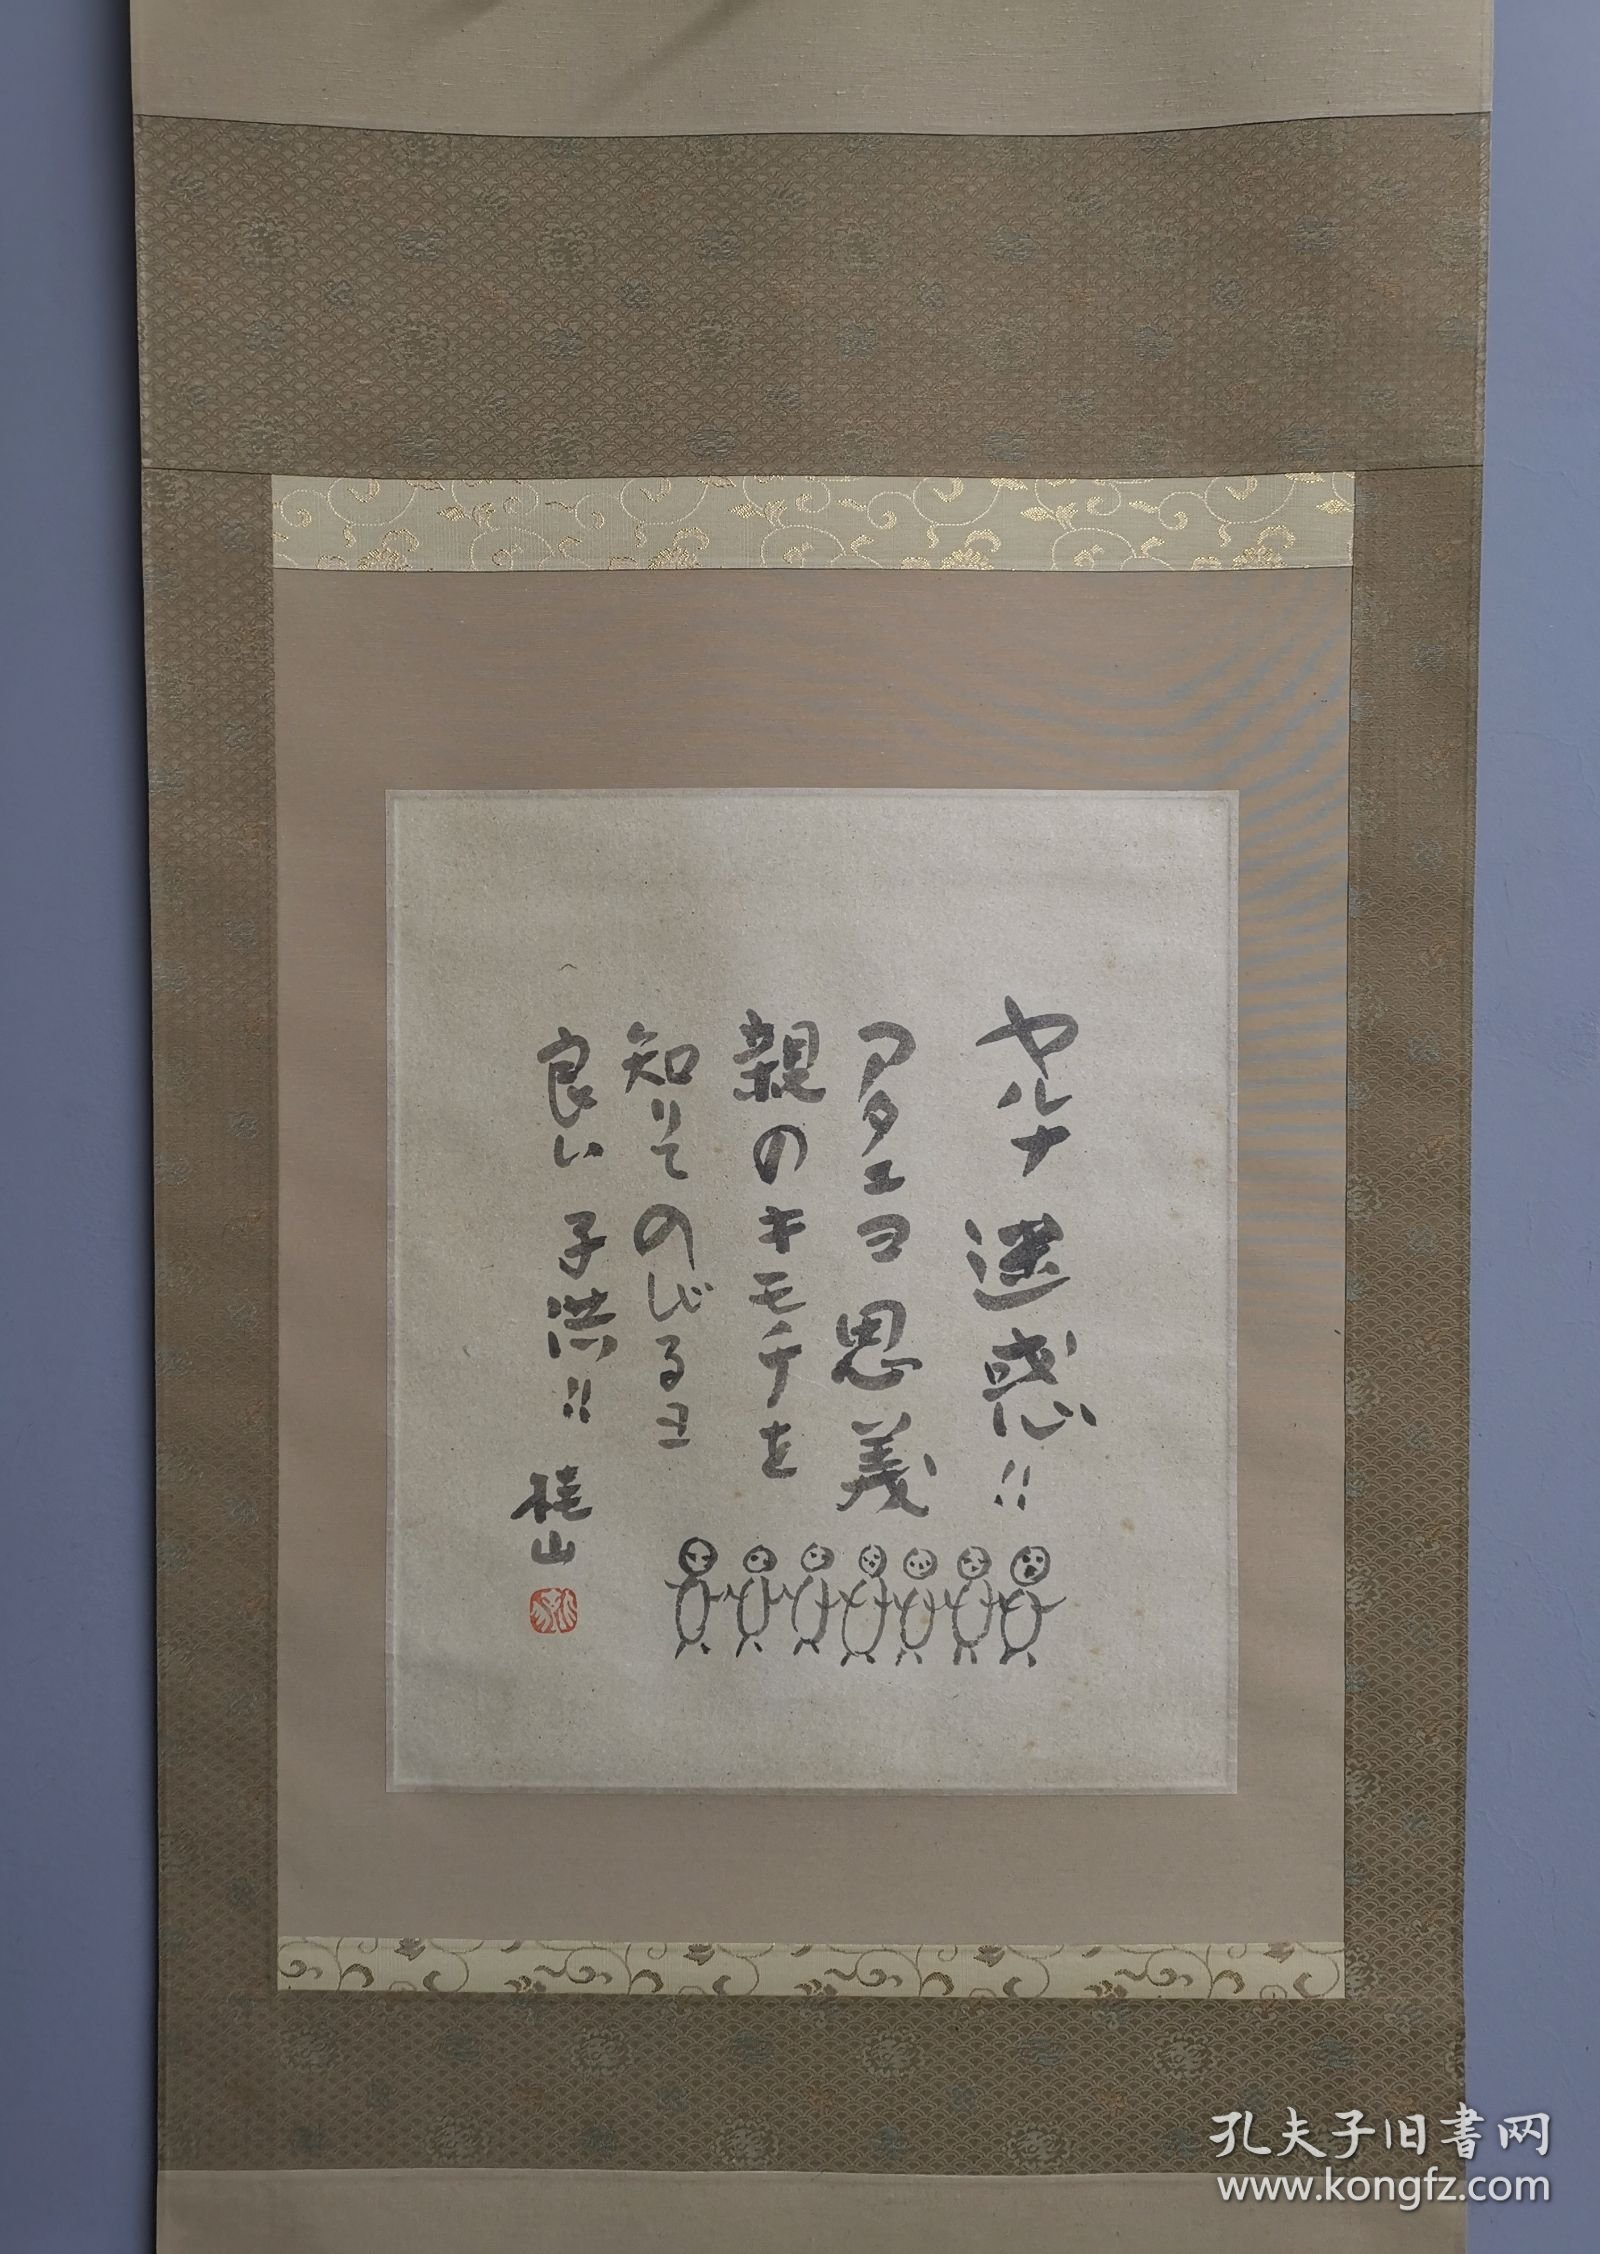 ヤルナ迷惑!!
アタエヨ恩義
親のキモチを
知りてのびるヨ
良い子供!!
孔夫子旧書网
www.kongfz.com